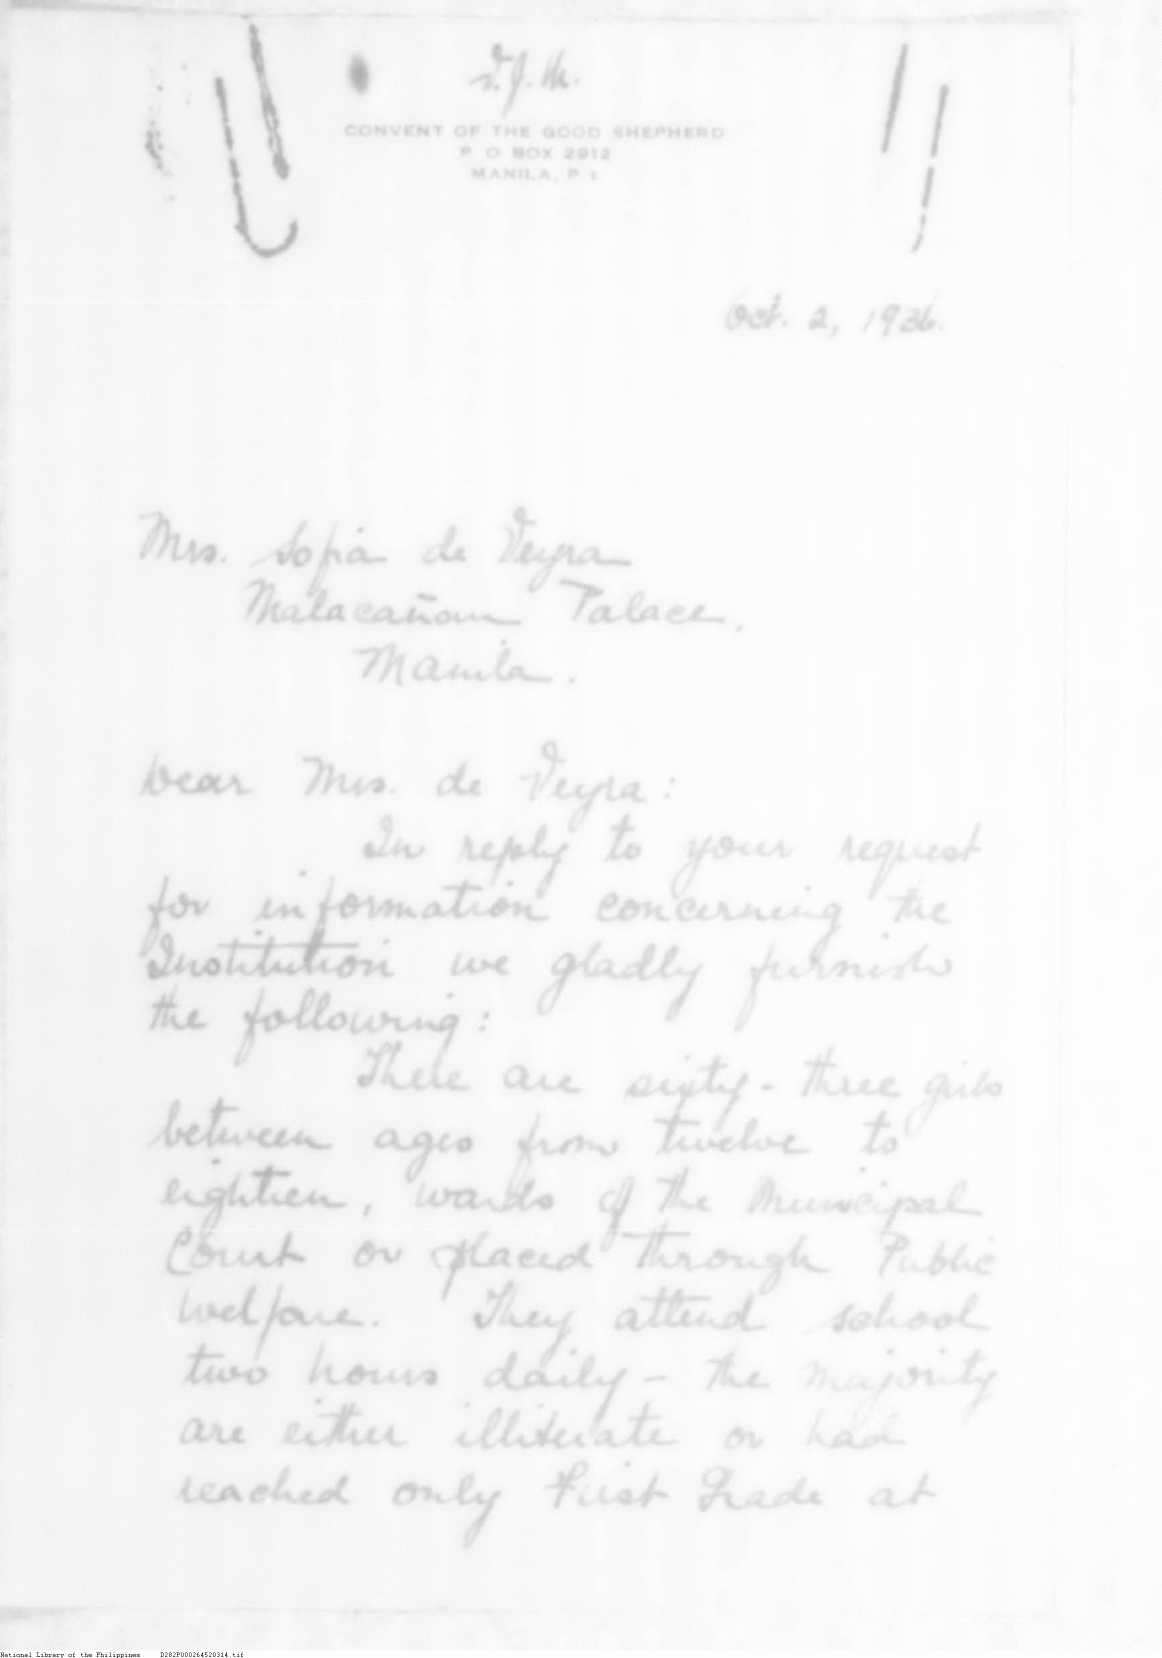 V. J. M.
CONVENT OF THE GOOD SHEPHERD
P. O BOX 2912
MANILA, P. I.
Oct. 2, 1936.
Mrs. Sofia de Veyra
Malacañan Palace,
Manila.
Dear Mrs. de Veyra:
In reply to your request
for information concerning the
Institution we gladly furnish
the following:
There are sixty-three girls
between ages from twelve to
eighteen, wards of the Municipal
Court or placed through Public
Welfare. They attend school
two hours daily - the majority
are either illiterate or had
reached only First Grade at
National Library of the Philippines D282P000264520314.tif